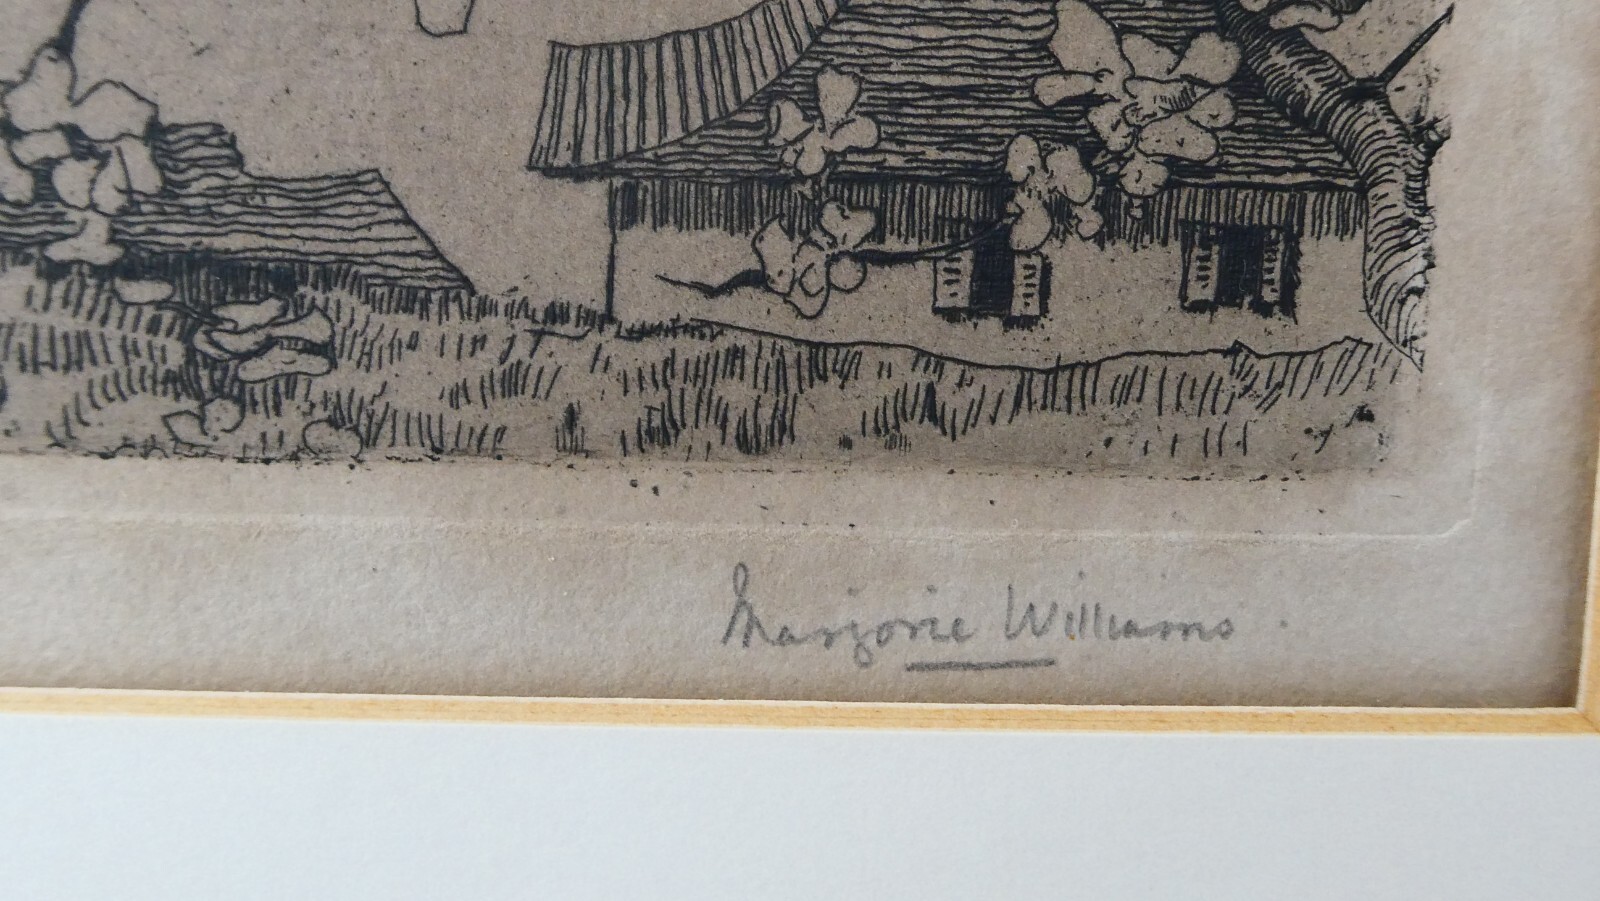 Marjorie Williams.